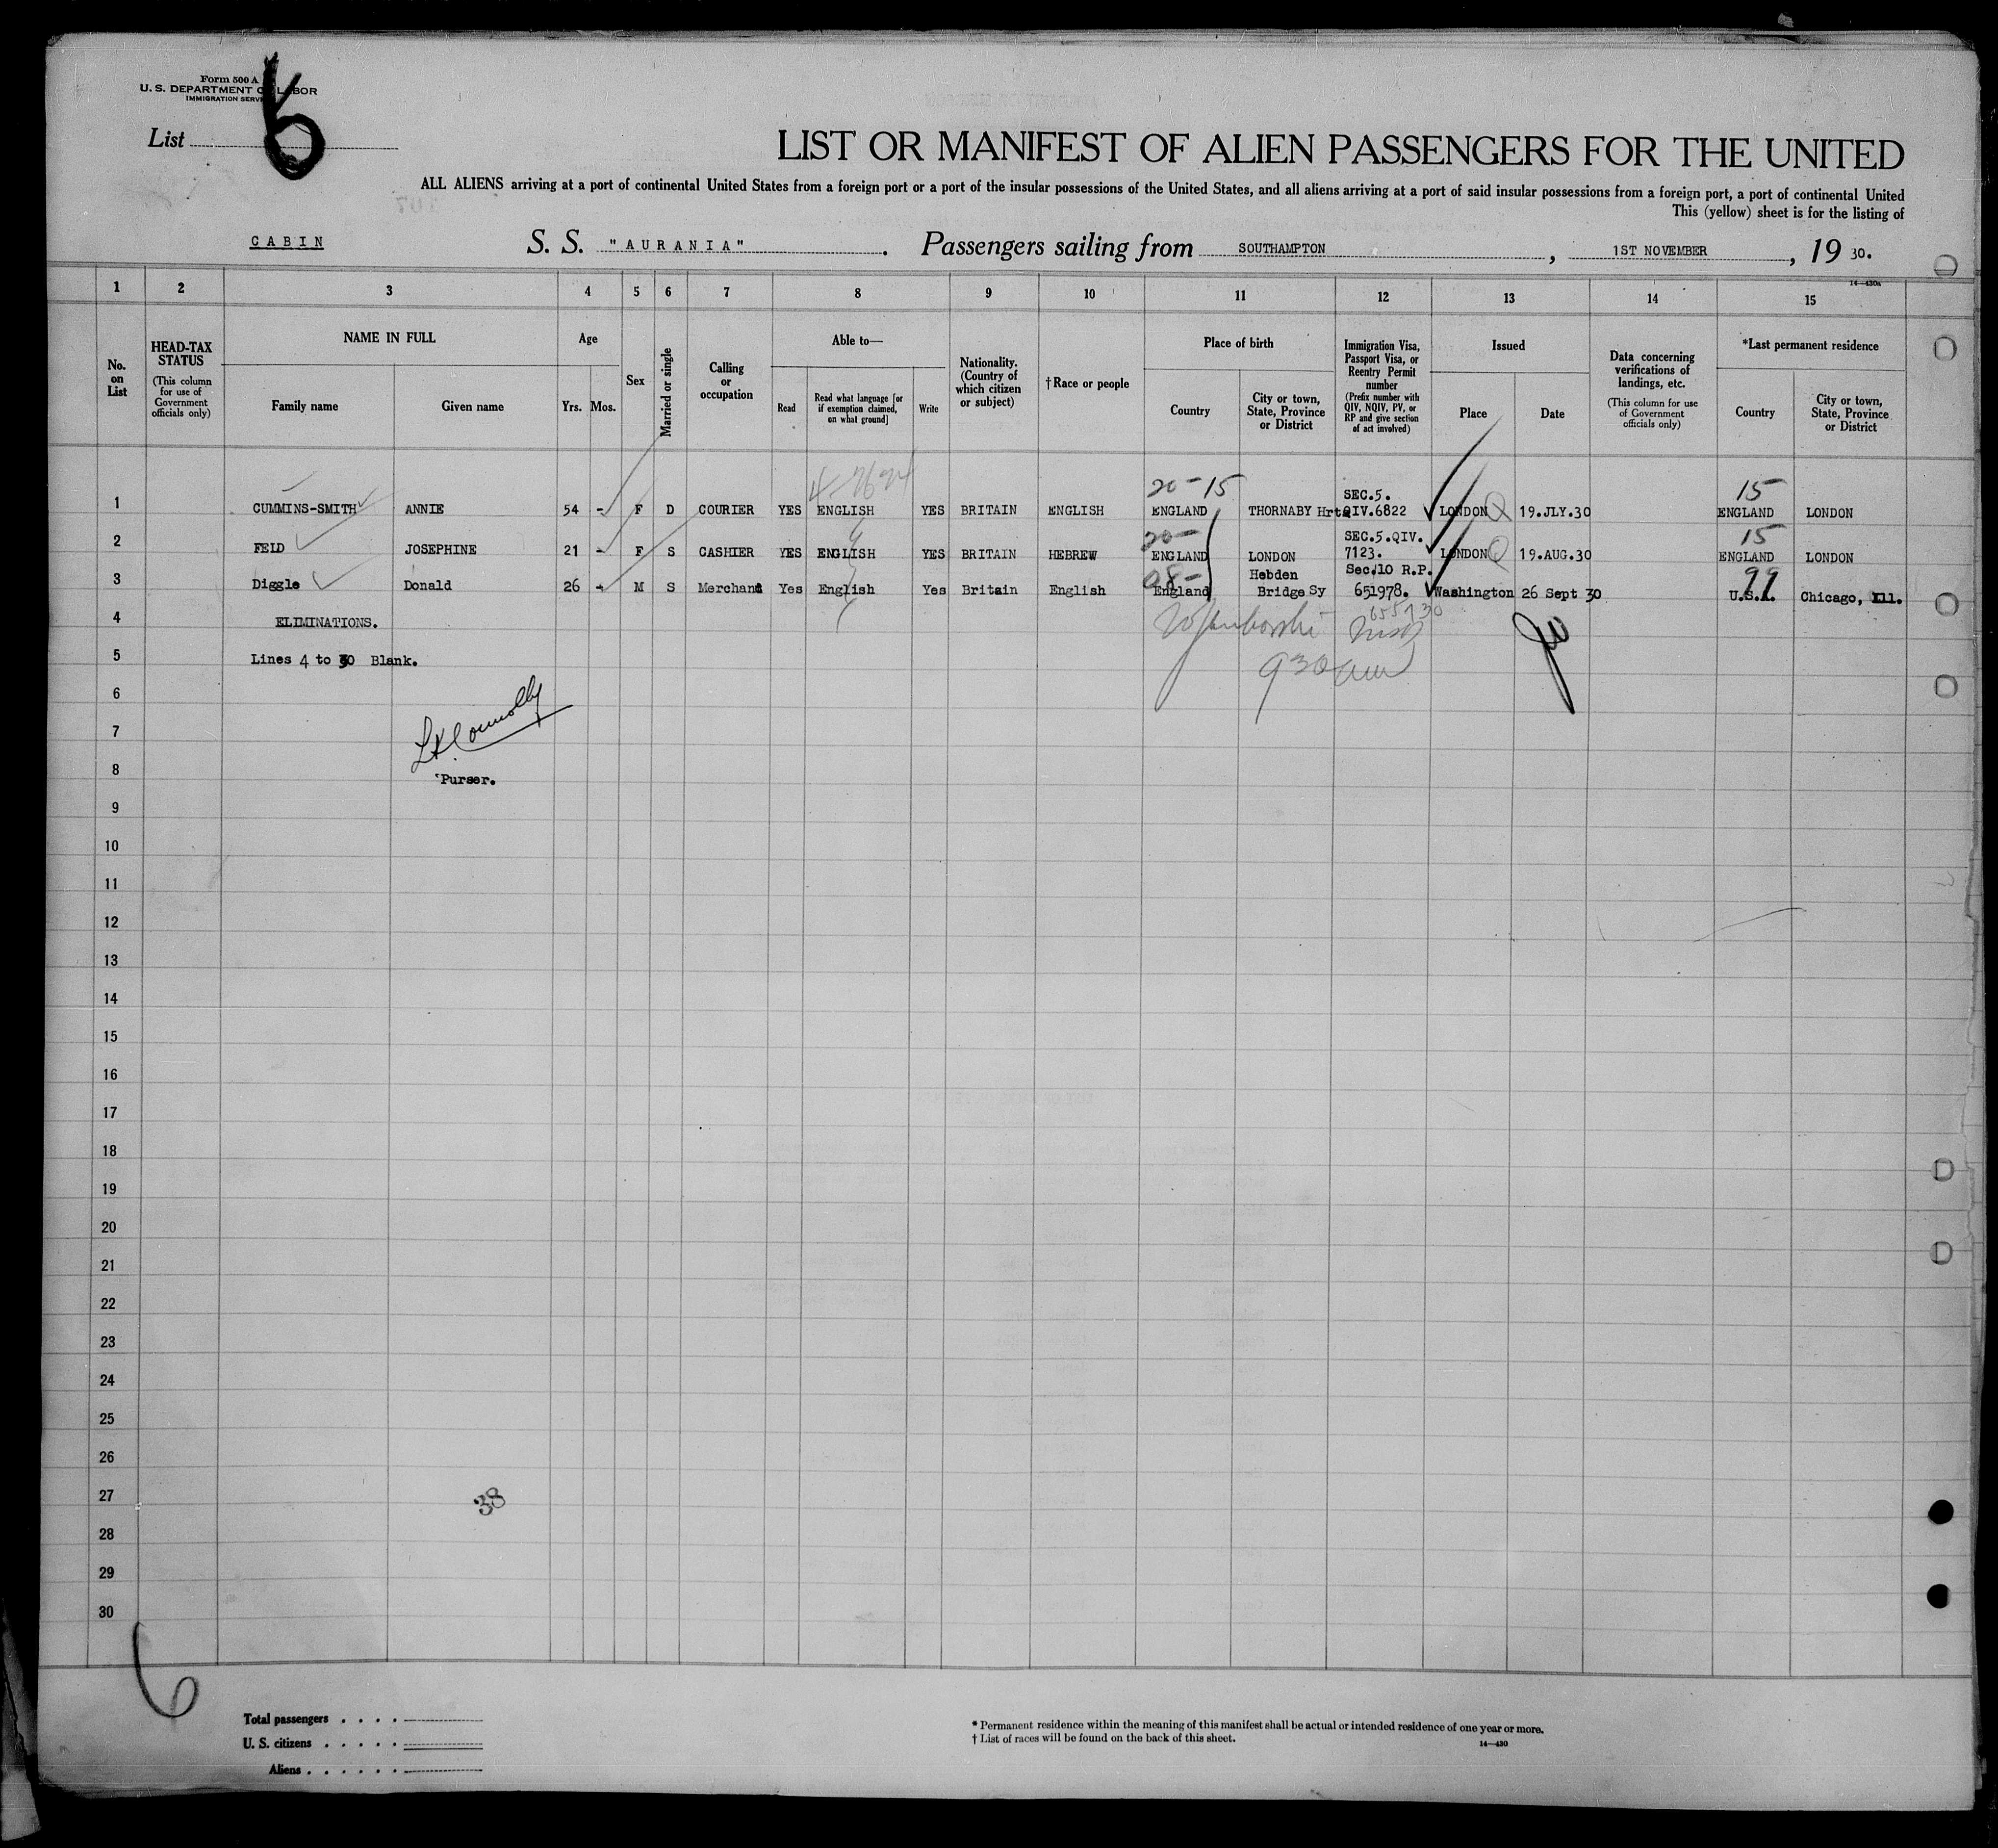 Form 500 A
U. S. DEPARTMENT OF LABOR
IMMIGRATION SERVICE
List 6
LIST OR MANIFEST OF ALIEN PASSENGERS FOR THE UNITED
ALL ALIENS arriving at a port of continental United States from a foreign port or a port of the insular possessions of the United States, and all aliens arriving at a port of said insular possessions from a foreign port, a port of continental United
This (yellow) sheet is for the listing of
CABIN S. S. "AURANIA". Passengers sailing from SOUTHAMPTON, 1ST NOVEMBER, 19 30.
14—430a
1 2 3 4 5 6 7 8 9 10 11 12 13 14 15
No. on List
HEAD-TAX STATUS (This column for use of Government officials only)
NAME IN FULL Family name Given name
Age Yrs. Mos.
Sex
Married or single
Calling or occupation
Able to— Read Read what language [or if exemption claimed, on what ground] Write
Nationality. (Country of which citizen or subject)
†Race or people
Place of birth Country City or town, State, Province or District
Immigration Visa, Passport Visa, or Reentry Permit number (Prefix number with QIV, NQIV, PV, or RP and give section of act involved)
Issued Place Date
Data concerning verifications of landings, etc. (This column for use of Government officials only)
*Last permanent residence Country City or town, State, Province or District
20-15 15
1 CUMMINS-SMITH ANNIE 54 - F D COURIER YES ENGLISH YES BRITAIN ENGLISH ENGLAND THORNABY SEC.5. QIV.6822 LONDON 19.JLY.30 ENGLAND LONDON
20- 15
2 FELD JOSEPHINE 21 - F S CASHIER YES ENGLISH YES BRITAIN HEBREW ENGLAND LONDON SEC.5.QIV. 7123. LONDON 19.AUG.30 ENGLAND LONDON
08- 99
3 Diggle Donald 26 - M S Merchant Yes English Yes Britain English England Hebden Bridge Sy Sec.10 R.P. 651978. Washington 26 Sept 30 U.S.A. Chicago, Ill.
4 ELIMINATIONS.
5 Lines 4 to 30 Blank.
930am
6
7 Connolly
8 Purser.
9
10
11
12
13
14
15
16
17
18
19
20
21
22
23
24
25
26
27 38
28
29
30
6
Total passengers . . . .
U. S. citizens . . . . .
Aliens . . . . . .
* Permanent residence within the meaning of this manifest shall be actual or intended residence of one year or more.
† List of races will be found on the back of this sheet.
14—430